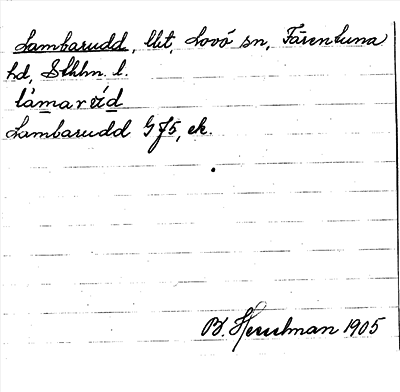 Lambarudd, llt, Lovö sn, Färentuna
hd, Sthlm l.
Lambarudd GJ5, ek.
B. Hesselman 1905